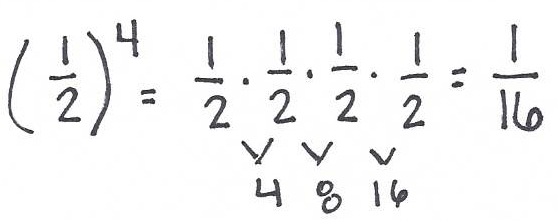 (1/2)^4 = 1/2 · 1/2 · 1/2 · 1/2 = 1/16
4 8 16